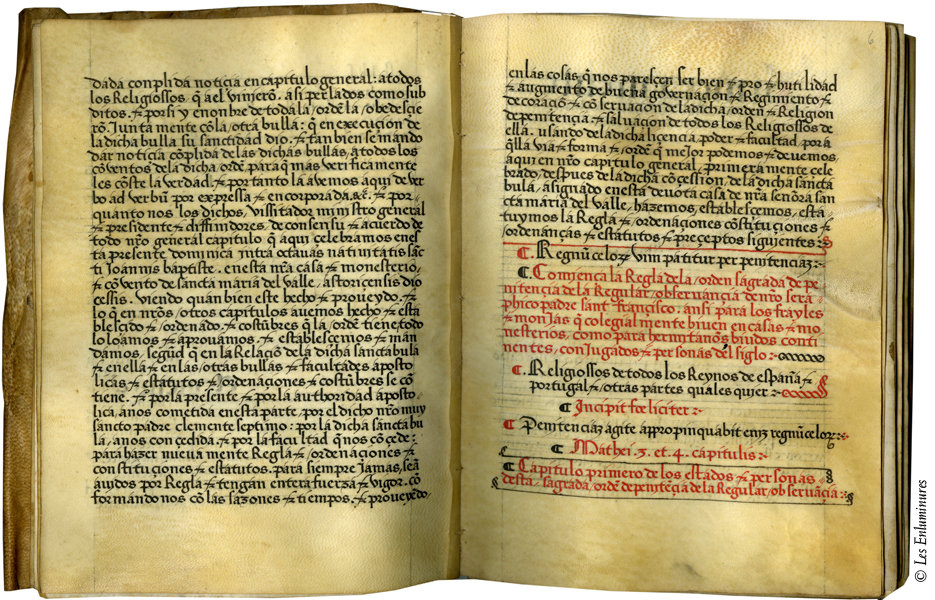 dada conplida noticia en capitulo general: a todos
los Religiossos q̃ a el vinierõ. asi perlados como sub
ditos. ⁊ por si y en onbre de toda la / ordẽ la / obedesçie
rõ. Junta mente cõ la / otra bulla: q̃ en execucion de
la dicha bulla su sanctidad dio. ⁊ tan bien se mando
dar noticia cõplida de las dichas bullas, a todos los
cõventos de la dicha / ordẽ. para q̃ mas verificamente
les cõste la verdad. ⁊ por tanto la avemos aqui de ver
bo ad verbũ por expressa ⁊ en corporada, &c. ⁊ por
quanto nos los dichos, vissitador ministro general
⁊ presidente ⁊ diffinidores, de consensu ⁊ acuerdo de
todo nr̃o general capitulo q̃ aqui celebramos enes
ta presente dominica intra octavas natiuitatis sãc
ti Joannis baptiste. en esta nr̃a casa ⁊ monesterio,
⁊ cõvento de sancta maria del valle, astoricensis dio
cessis. viendo quan bien este hecho ⁊ proueydo. ⁊
lo q̃ en nr̃os / otros capitulos auemos hecho ⁊ esta
blesçido ⁊ / ordenado. ⁊ costũbres q̃ la / ordẽ tiene, todo
lo loamos ⁊ aprouamos. ⁊ establescemos ⁊ mãn
damos, segũd q̃ en la Relaciõ de la dicha sancta bula
⁊ en ella ⁊ en las / otras bullas ⁊ facultades aposto
licas ⁊ estatutos ⁊ / ordenaciones ⁊ costũbres se cõ
tiene. ⁊ por la presente ⁊ por la authoridad aposto
lica, a nos cometida en esta parte, por el dicho nr̃o muy
sancto padre clemente septimo: por la dicha sancta bu
la, a nos conçedida. ⁊ por la facultad q̃ nos cõçede:
para hazer nueva mente Regla ⁊ / ordenaciones ⁊
constituciones ⁊ estatutos. para siempre Jamas, seã
auidos por Regla ⁊ tengan entera fuerza ⁊ vigor. cõ
formando nos cõ las sazones ⁊ tiempos. ⁊ proueyẽdo
6
en las cosas, q̃ nos paresçen ser bien ⁊ pro ⁊ hutilidad
⁊ augmento de buena governacion ⁊ Regimiento ⁊
decoraçiõ ⁊ cõservacion de la dicha / orden ⁊ Religion
de penitencia ⁊ salvacion de todos los Religiossos de
ella. usando de la dicha licencia, poder ⁊ facultad, por a
q̃lla via ⁊ forma ⁊ / ordẽ q̃ mejor podemos ⁊ devemos,
aqui en nr̃o capitulo general, primera mente cele
brado, despues de la dicha cõçession, de la dicha sancta
bula, asignado en esta deuota casa de nr̃a señora san
cta maria del valle, hazemos, establesçemos, esta
tuymos la Regla ⁊ / ordenaciones cõstituçiones ⁊
/ ordenanças ⁊ estatutos ⁊ preceptos siguientes:
¶ Regnũ celoꝝ vim patitur per penitenciaꝫ:
¶ Comiença la Regla de la / orden sagrada de pe
nitencia de la Regular / observançia de nr̃o sera
phico padre sant françisco: ansi para los frayles
⁊ monjas q̃ colegial mente biuen en casas ⁊ mo
nesterios, como para hermitaños biudos conti
nentes, conJugados ⁊ personas del siglo:
¶ Religiossos de todos los Reynos de españa ⁊
portugal ⁊ / otras partes quales quier:
¶ Incipit fœliciter:
¶ Penitenciaꝫ agite appropinquabit eniꝫ regnũ celoꝝ:
¶ Mathei. 3. et. 4. capitulis:
¶ Capitulo primero de los estados ⁊ personas
desta sagrada / ordẽ de penitẽcia de la Regular / observãçia:
© Les Enluminures